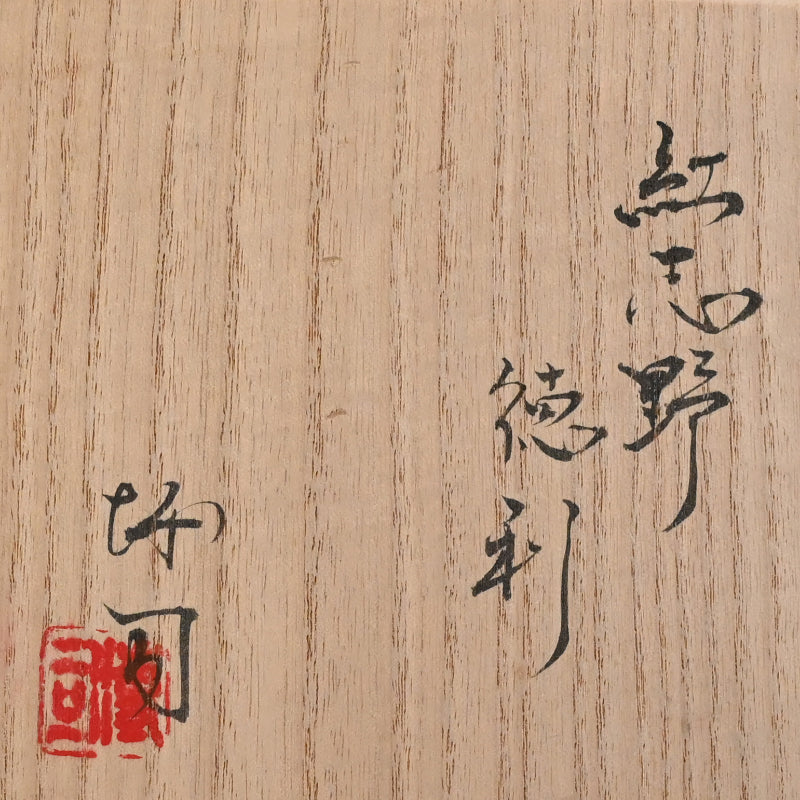 紅志野
徳利
司